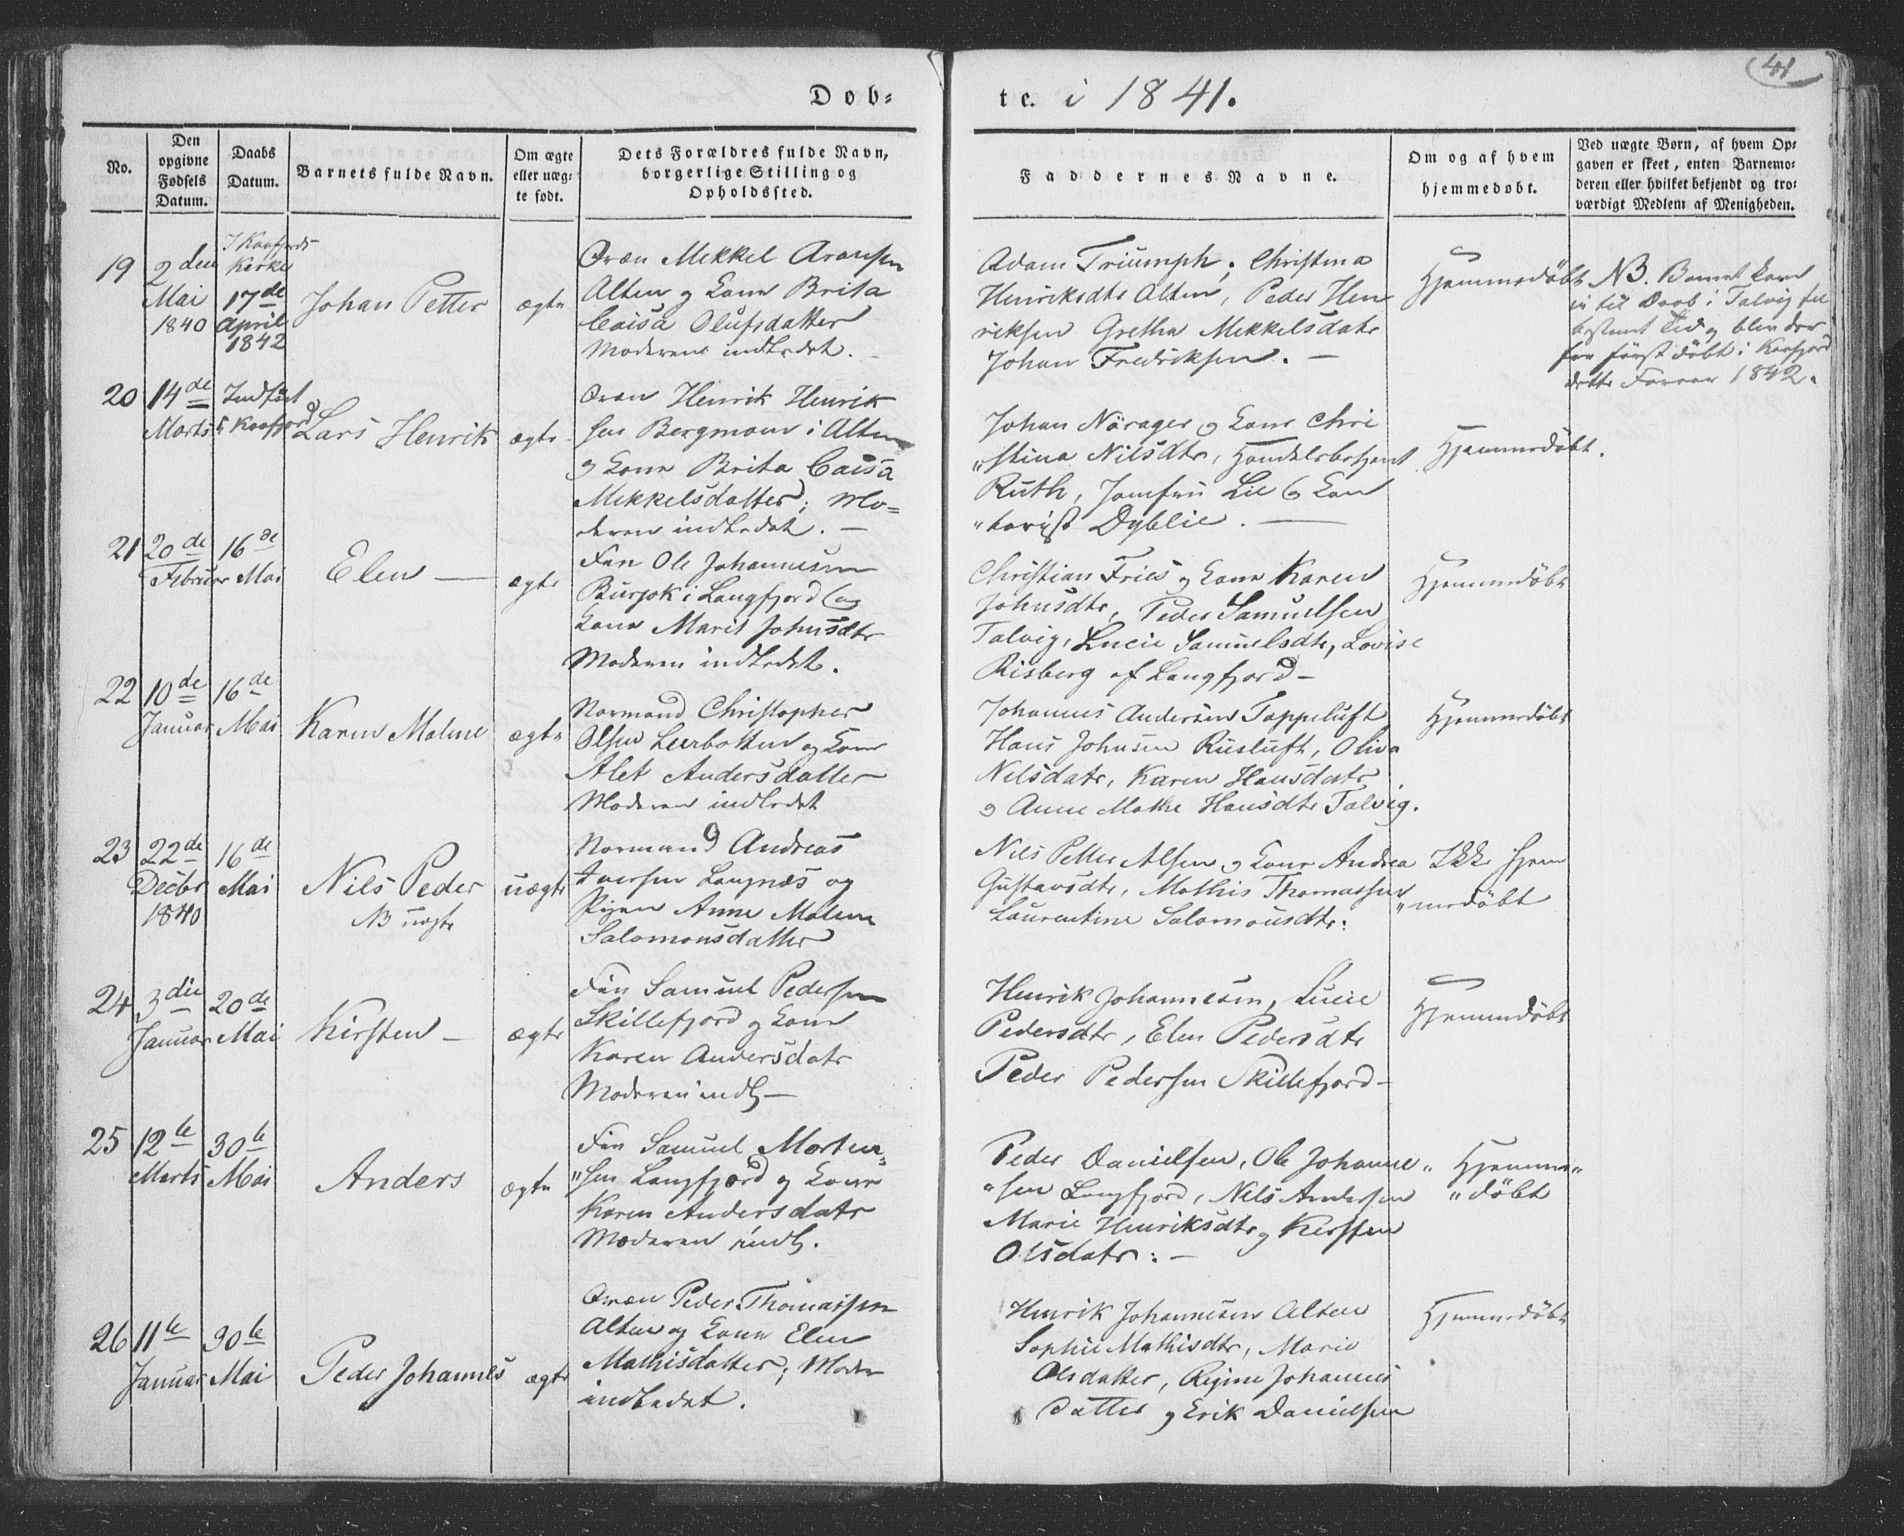 41
Døb-
te. i 1841.
No.
Den opgivne Fødsels Datum.
Daabs Datum.
Barnets fulde Navn.
Om ægte eller uæg-te født.
Dets Forældres fulde Navn, borgerlige Stilling og Opholdssted.
Faddernes Navne.
Om og af hvem hjemmedøbt.
Ved uægte Børn, af hvem Op-
gaven er skeet, enten Barnemo-
deren eller hvilket bekjendt og tro-
værdigt Medlem af Menigheden.
19
2den
Mai
1840
I Kaafjords
Kirke
17de
April
1842
Johan Petter
ægte
Qvæn Mekkel Aronsen
Alten og Kone Brita
Caisa Olufsdatter
Moderen indledet. -
Adam Triumph, Christina
Henriksdtr Alten, Peder Hen
riksen Grethe Mekkelsdatr
Johan Fredriksen. -
Hjemmedøbt
NB. Barnet kom
ei til Daab i Talvig til
bestemt Tid og blev der
for først døbt i Kaafjord
dette Foraar 1842.
20
14de
Marts
Indført
i Kaafjord
Lars Henrik
ægte
Qvæn Henrik Henrik
sen Bergmann i Alten
og Kone Brita Caisa
Mekkelsdatter; Mo-
deren indledet. -
Johan Närager og Kone Chri
"stina Nilsdtr, Handelsbetjent
Ruth, Jomfru Lie og Kon
"torist Dyblie.
Hjemmedøbt.
21
20de
Februar
16de
Mai
Elen -
ægte
Fin Ole Johannesen
Burjok i Langfjord og
Kone Marit Johnsdtr
Moderen indledet.
Christian Fries og Kone Karen
Johnsdtr, Peder Samuelsen
Talvig, Lucie Samuelsdtr, Lovise
Risberg af Langfjord -
Hjemmedøbt
22
10de
Januar
16de
Mai
Karen Malene
ægte
Normand Christopher
Olsen Leerbotten og Kone
Alet Andersdatter
Moderen indledet
Johannes Andersen Toppeluft
Hans Johnsen Rusluft, Oliva
Nilsdatr, Karen Hansdatr
og Anne Mathe Hansdtr Talvig.
Hjemmedøbt
23
22de
Decbr
1840
16de
Mai
Nils Peder
NB uægte
uægte
Normand Andreas
Iversen Langnæs og
Pigen Anne Malene
Salomonsdatter
Nils Petter Alsen og Kone Andrea
Gustavsdtr, Mathis Thomassen
Laurentine Salomonsdtr:
Ikke hjem
"medøbt
24
3die
Januar
20de
Mai
Kirsten -
ægte
Fin Samuel Pedersen
Skillefjord og Kone
Karen Andersdatr
Moderen indl. -
Henrik Johannesen, Lucie
Pedersdtr, Elen Pedersdtr
Peder Pedersen Skillefjord -
Hjemmedøbt
25
12te
Marts
30te
Mai
Anders
ægte
Fin Samuel Morten-
"sen Langfjord og Kone
Karen Andersdatr
Moderen indl.
Peder Danielsen, Ole Johanne"
"sen Langfjord, Nils Andersen
Marie Henriksdtr og Kirsten
Olsdatr: -
Hjemme"
"døbt
26
11te
Januar
30te
Mai
Peder Johannes
ægte
Qvæn Peder Thomassen
Alten og Kone Elen
Mathisdatter; Moder
indledet.
Henrik Johannesen Alten
Sophie Mathisdtr, Marie
Olsdatter, Regine Johannes
datter og Erik Danielsen
Hjemmedøbt